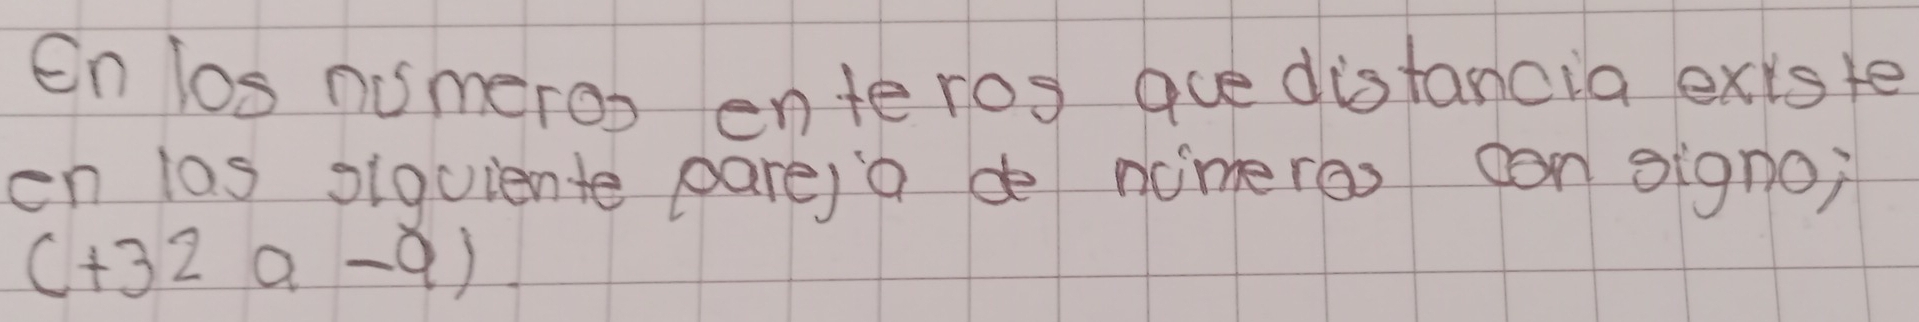 En los números enteros que distancia existe
en las siguiente pareja de números con signo;
(+32 a -9)